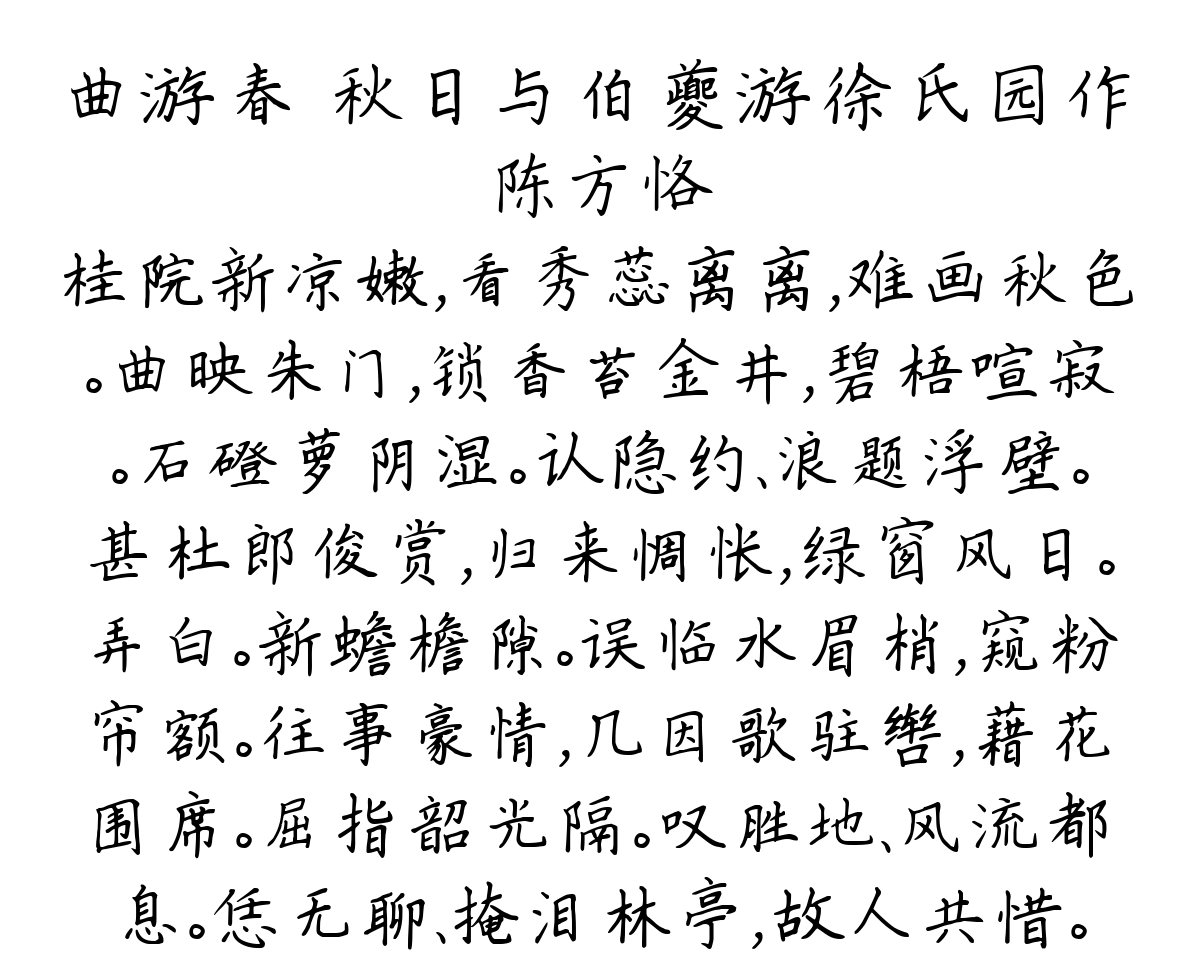 曲游春 秋日与伯夔游徐氏园作
陈方恪
桂院新凉嫩,看秀蕊离离,难画秋色
。曲映朱门,锁香苔金井,碧梧喧寂
。石磴萝阴湿。认隐约、浪题浮壁。
甚杜郎俊赏,归来惆怅,绿窗风日。
弄白。新蟾檐隙。误临水眉梢,窥粉
帘额。往事豪情,几因歌驻辔,藉花
围席。屈指韶光隔。叹胜地、风流都
息。恁无聊、掩泪林亭,故人共惜。